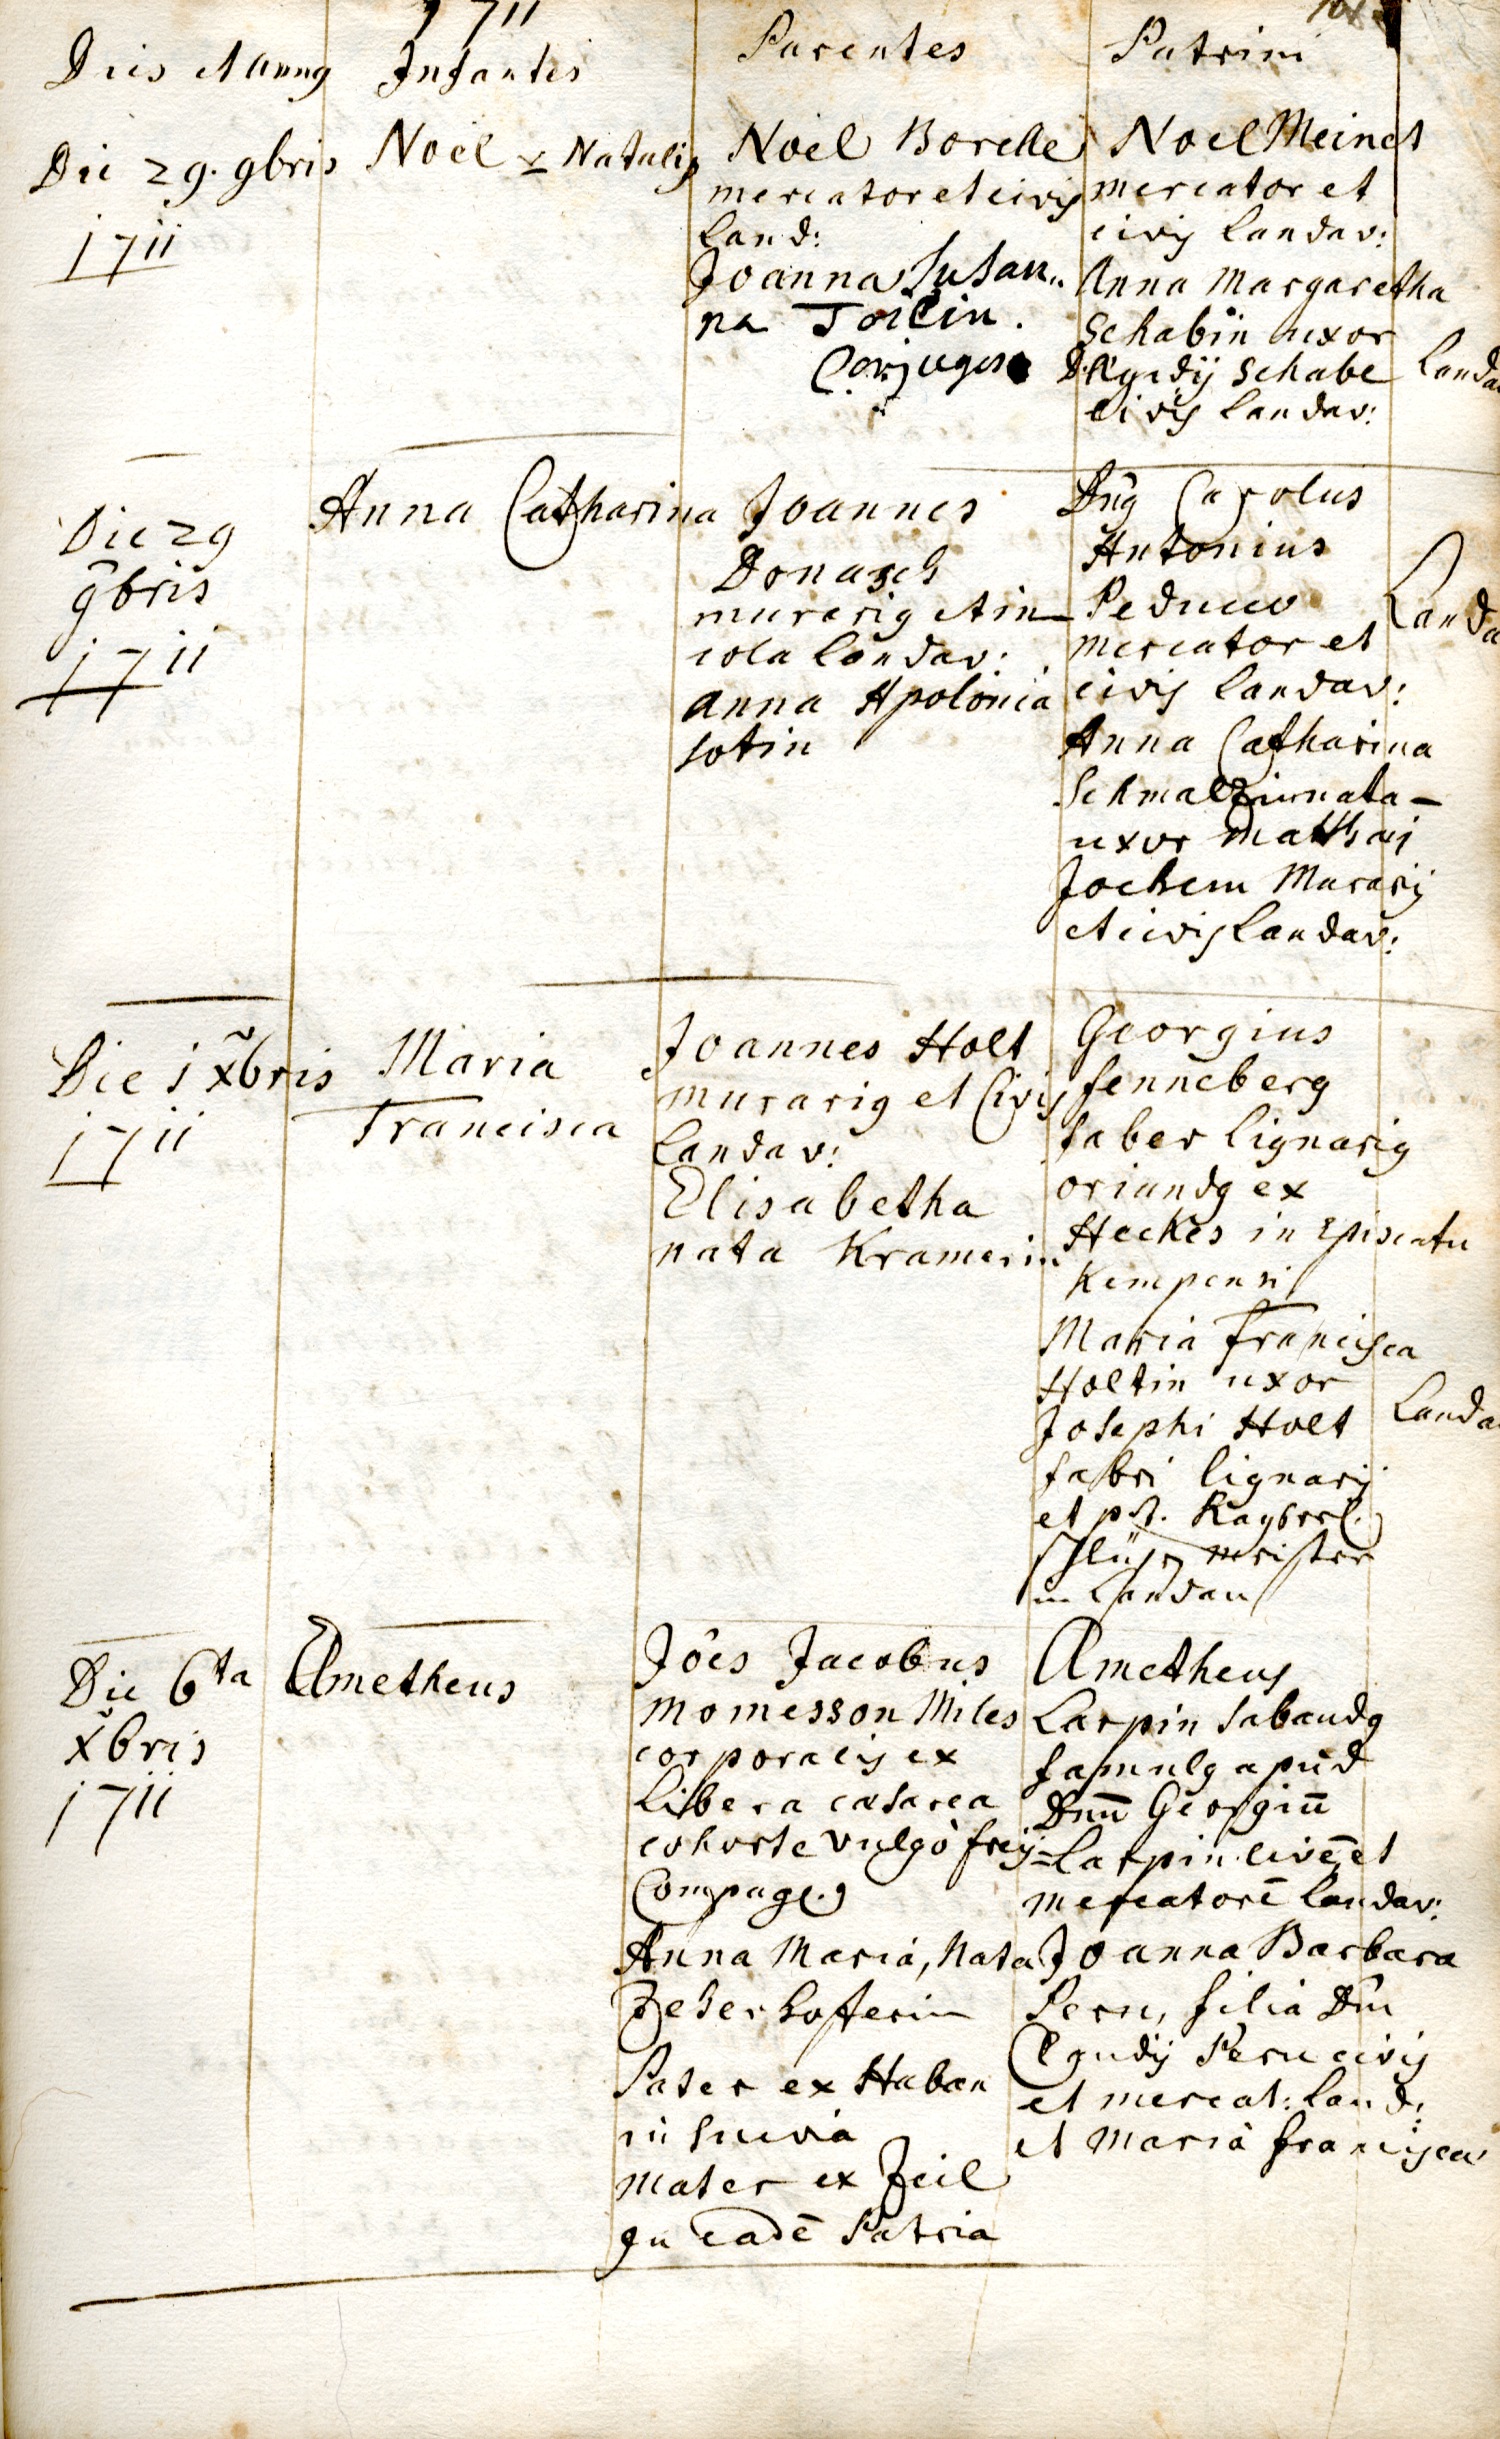 1711
Dies et annus
Infantes
Parentes
Patrini
Die 29. 9bris
1711
Noël
Natalis
Noël Borelle
mercator et civis
Land:
Joanna Susan„
na Torlin.
Conjuges
Noel Meinet
mercator et
civis Landav:
Anna Margaretha
Schabin uxor
Schabe
civis Landav:
Die 29
9bris
1711
Anna Catharina
Joannes
Donasch
murarig et in
cola Landav:
Anna Apolonia
sotin
Dng Carolus
Antonius
Peduuv
mercator et
civis Landav:
Anna Catharina
Schmaltzin nata
uxor Matthaei
Jochem Murarij
et civis Landav:
Die 1 x̃bris
1711
Maria
Francisca
Joannes Holt
murarig et Civis
Landav:
Elisabetha
nata Kramerin
Georgius
fenneberg
faber lignarig
oriundg ex
Heckes in Episcatu
Kempensi
Maria Francisca
Holtin uxor
Josephi Holt
fabri lignarij
et p.t. Kayserl.
meister
in Landau
Die 6ta
x̃bris
1711
Ametheus
Jôes Jacobus
Momesson Miles
corporalis ex
Libera caesarea
cohorte vulgò frey=
Compagl.
Anna Maria, Nata
Zeserhofferin
Pater ex Haban
in suevia
mater ex Zeil
In eadē Patria
Ametheus
Larpin Sabaudg
famulg apud
Dnū Georgiū
Larpin civē et
mercatorē Landav:
Joanna Barbara
Peru, filia Dni
Egudij Peru civis
et mercat: Land:
et Maria francisca